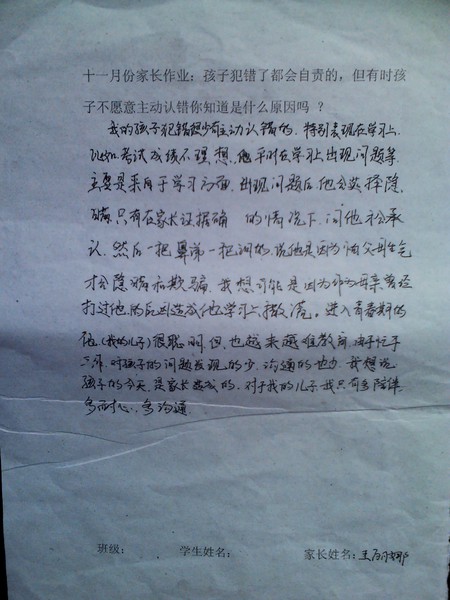 十一月份家长作业：孩子犯错了都会自责的，但有时孩
子不愿意主动认错你知道是什么原因吗 ？
我的孩子犯错很少有主动认错的，特别表现在学习上，
比如考试成绩不理想，他平时在学习上出现问题等
主要是来自于学习方面，出现问题后他总选择隐
瞒，只有在家长证据确 的情况下，问他才承
认，然后一把鼻涕一把泪的，说他是因为怕父母生气
才隐瞒和欺骗，我想可能是因为作为母亲曾经
打过他的原因造成他学习上撒谎，进入青春期的
他（我的儿子）很聪明，但也越来越难教育，由于忙于
工作，对孩子的问题发现的少，沟通的也少，我想说
孩子的今天，是家长造成的，对于我的儿子我只有多陪伴
多耐心，多沟通
班级： 学生姓名： 家长姓名：王